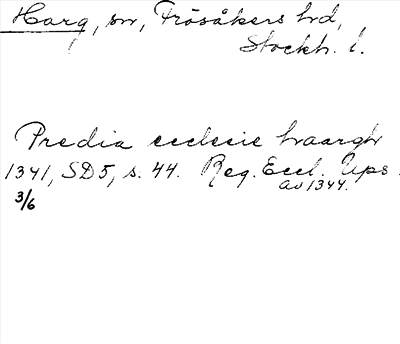 Harg, sn, Frösåkers hd,
Stockh. l.
Predia ecclesie haargh
1341, SD5, s. 44. Reg. Eccl. Ups.
av 1344.
3/6